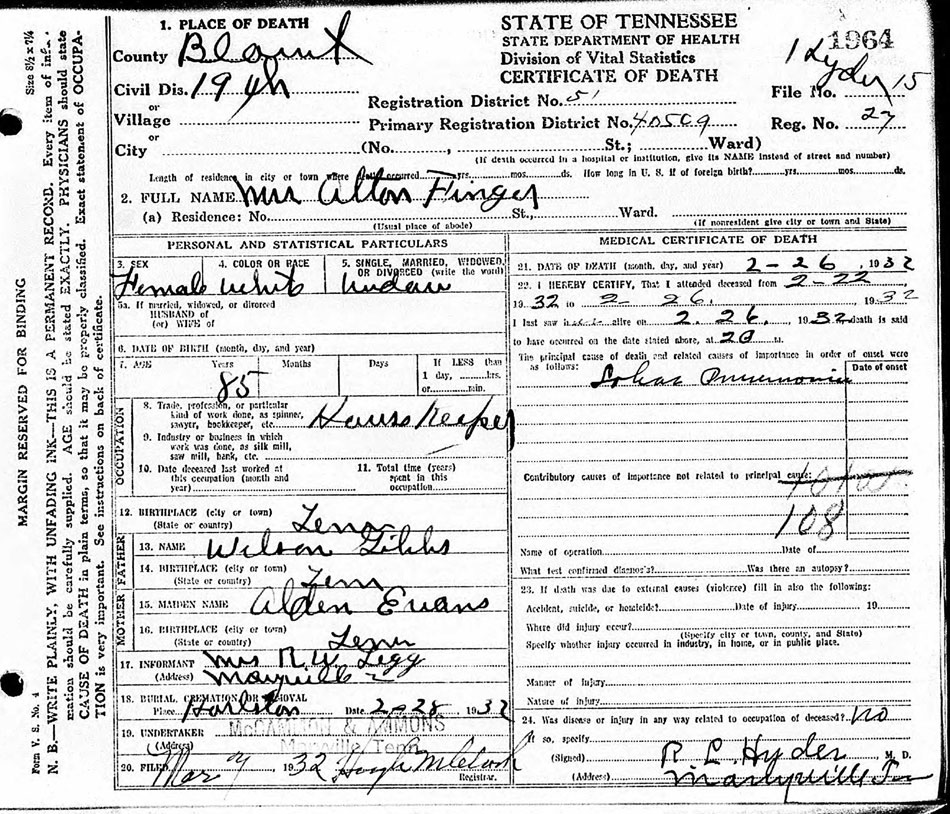 1. PLACE OF DEATH
County Blount
Civil Dis. 19th
or
Village
or
City (No. , St.; Ward)
STATE OF TENNESSEE
STATE DEPARTMENT OF HEALTH
Division of Vital Statistics
CERTIFICATE OF DEATH
1964
Registration District No. 51
File No. 15
Primary Registration District No. 40509
Reg. No. 27
(If death occurred in a hospital or institution, give its NAME instead of street and number)
Length of residence in city or town where death occurred yrs. mos. ds. How long in U. S. if of foreign birth? yrs. mos. ds.
2. FULL NAME Mrs Alton Finger
(a) Residence: No. St., Ward.
(Usual place of abode) (If nonresident give city or town and State)
PERSONAL AND STATISTICAL PARTICULARS
3. SEX 4. COLOR OR RACE 5. SINGLE, MARRIED, WIDOWED, OR DIVORCED (write the word)
Female White
5a. If married, widowed, or divorced
HUSBAND of
(or) WIFE of
6. DATE OF BIRTH (month, day, and year)
7. AGE Years Months Days If LESS than 1 day, hrs. or min.
85
OCCUPATION
8. Trade, profession, or particular kind of work done, as spinner, sawyer, bookkeeper, etc. House Keeper
9. Industry or business in which work was done, as silk mill, saw mill, bank, etc.
10. Date deceased last worked at this occupation (month and year)
11. Total time (years) spent in this occupation
12. BIRTHPLACE (city or town)
(State or country) Tenn
FATHER
13. NAME Wilson Gibbs
14. BIRTHPLACE (city or town)
(State or country) Tenn
MOTHER
15. MAIDEN NAME Alden Evans
16. BIRTHPLACE (city or town)
(State or country) Tenn
17. INFORMANT Mrs R.W. Legg
(Address) Maryville
18. BURIAL, CREMATION OR REMOVAL
Place Date 2-28 1932
19. UNDERTAKER McCAMMON & AMMONS
(Address) Maryville, Tenn
20. FILED Mar 1932
Registrar.
MEDICAL CERTIFICATE OF DEATH
21. DATE OF DEATH (month, day, and year) 2-26, 1932
22. I HEREBY CERTIFY, That I attended deceased from 2-22
1932 to 2-26. 1932
I last saw h alive on 2.26., 1932 death is said
to have occurred on the date stated above, at m.
The principal cause of death and related causes of importance in order of onset were as follows:
Date of onset
Lobar Pneumonia
Contributory causes of importance not related to principal cause:
108
Name of operation Date of
What test confirmed diagnosis? Was there an autopsy?
23. If death was due to external causes (violence) fill in also the following:
Accident, suicide, or homicide? Date of injury 19
Where did injury occur?
(Specify city or town, county, and State)
Specify whether injury occurred in industry, in home, or in public place.
Manner of injury
Nature of injury
24. Was disease or injury in any way related to occupation of deceased? no
If so, specify
(Signed) R. L. Hyder M. D.
(Address) Maryville Tn
Size 8½ x 7¼
MARGIN RESERVED FOR BINDING
N. B.—WRITE PLAINLY, WITH UNFADING INK—THIS IS A PERMANENT RECORD. Every item of
mation should be carefully supplied. AGE should be stated EXACTLY. PHYSICIANS should state
CAUSE OF DEATH in plain terms, so that it may be properly classified. Exact statement of OCCUPA-
TION is very important. See instructions on back of certificate.
Form V. S. No. 4